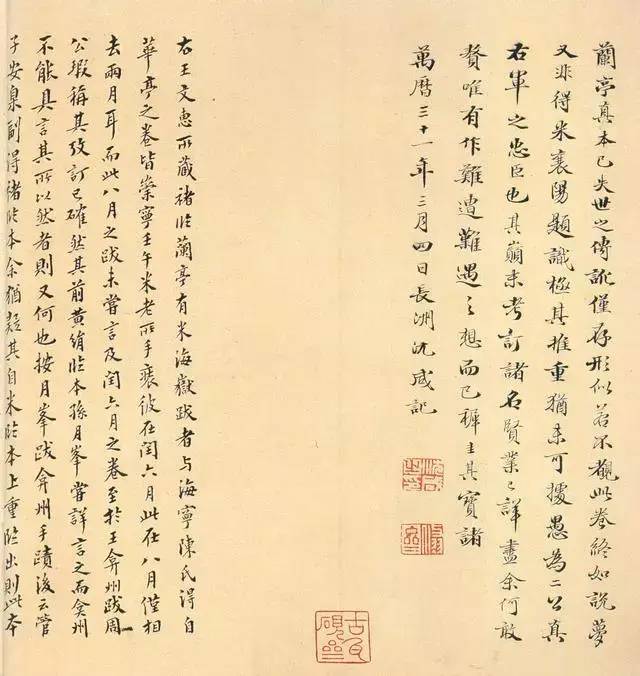 蘭亭真本已失世之傳訛僅存形似若不觀此卷終如說夢
又非得米襄陽題識極其推重猶未可據愚為二公真
右軍之忠臣也其巔末考訂諸名賢業已詳盡余何敢
贅唯有作難遭難遇之想而已穉圭其寶諸
萬曆三十一年三月四日長洲沈咸記
右王文惠所藏褚臨蘭亭有米海嶽跋者與海寧陳氏得自
華亭之卷皆崇寧壬午米老所手裹彼在閏六月此在八月僅相
去兩月耳而此八月之跋未嘗言及閏六月之卷至於王弇州跋周
公瑕稱其攷訂已確然其前黃絹臨本孫月峯嘗詳言之而弇州
不能具言其所以然者則又何也按月峯跋弇州手蹟後云管
子安臬副得褚臨本余猶疑其自米臨本上重臨出則此本